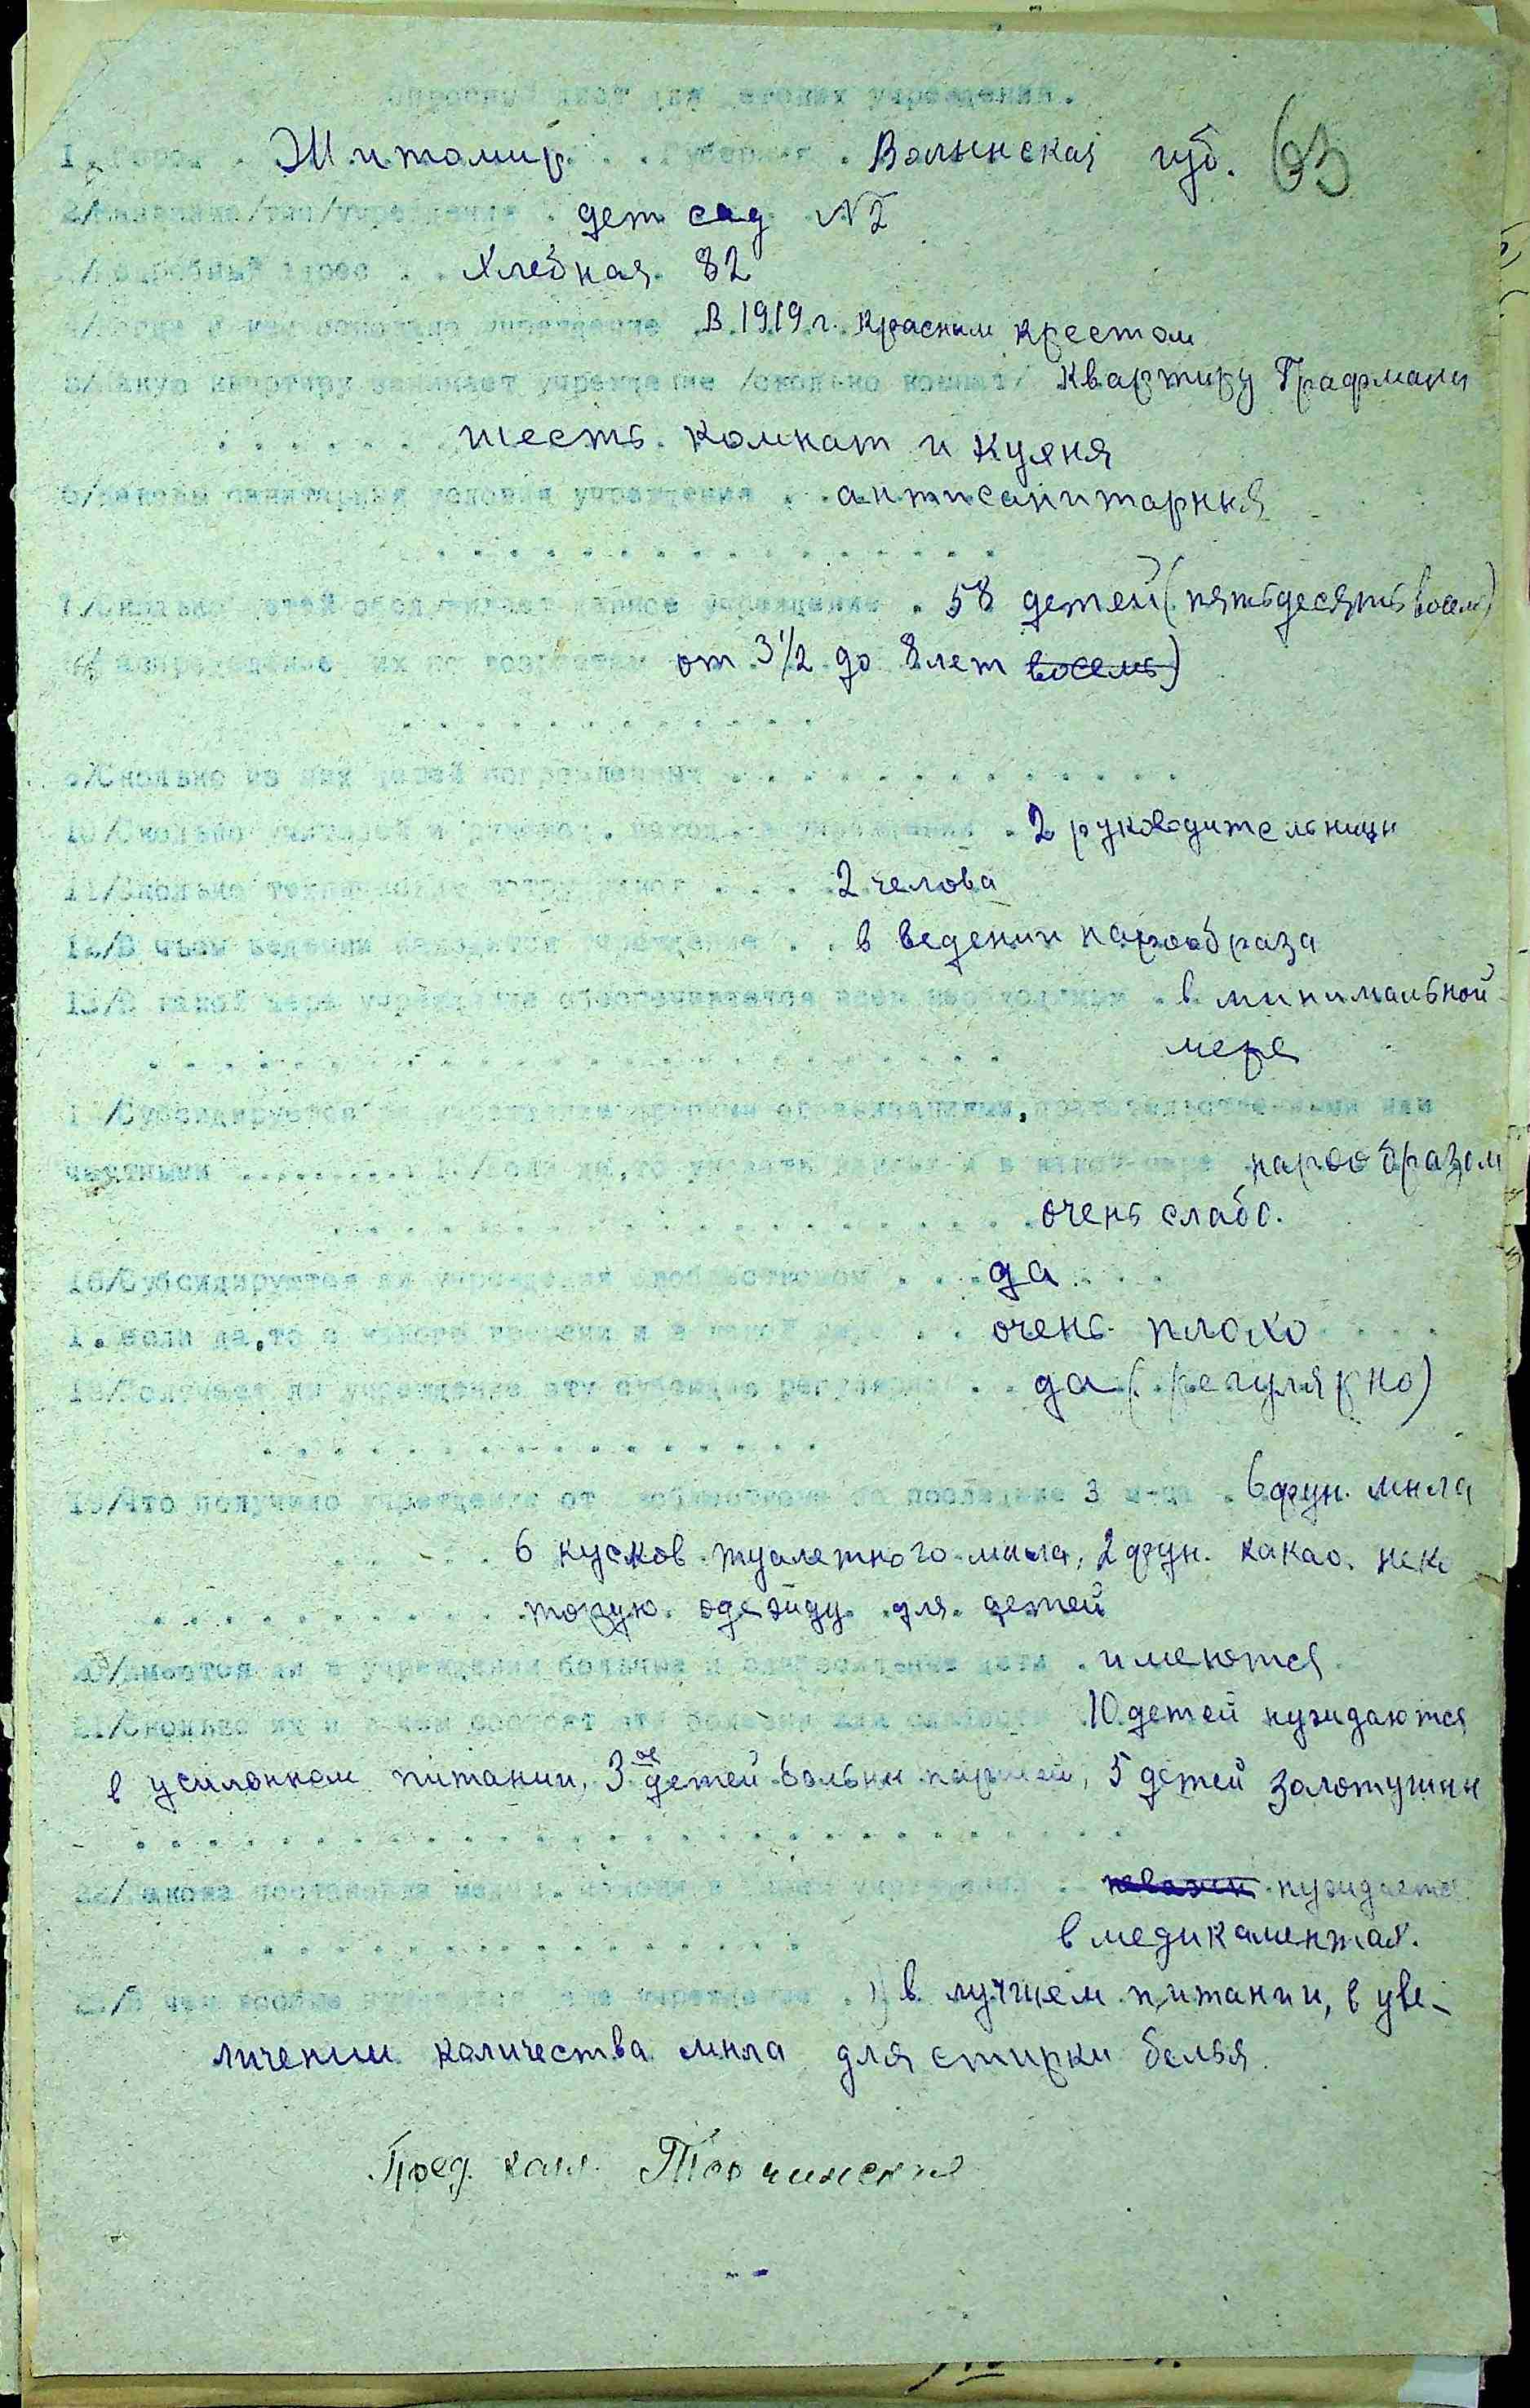 Опросный лист для детских учреждений.
63
1. Город . Житомир . . Губерния . Волынская губ.
2/Название/тип/учреждения . дет сад №2
3/Подробный адрес . . Хлебная. 82
учреждение В 1919 г. Красным крестом
5/Какую квартиру занимает учреждение /сколько комнат/ Квартиру Графмана
шесть. комнат и кухня
6/Каковы санитарныя условия учреждения . . антисанитарныя
7/Сколько детей обслуживает данное учреждение . 58 детей (пятьдесять восемь)
их по возрастам от 3½ до 8 лет восемь)
9/Сколько из них детей
10/Сколько . . 2 руководительницы
11/Сколько технических . . . . 2 челова
12/В чьем ведении находится учреждение . . в ведении наробраза
13/В какой мере учреждение обеспечивается всем необходимым . в минимальной
мере
14/Субсидируется ли учреждение другими организациями, или
частными .......... 15/если да, то указать какими и в какой мере наробразом
очень слабо.
16/Субсидируется ли учреждения Евобщесткомом . . . да
17. если да, то с какого времени и в какой мере . . очень плохо
18/Получает ли учреждение эту субсидию регулярно . . да (регулярно)
19/Что получило учреждение от Евобщесткома за последние 3 м-ца . 6 фун. мыла
6 кусков туалетного мыла, 2 фун. какао. неко
торую одежду для детей
20/имеются ли в учреждении больные и дети . имеются
21/Сколько их и 10 детей нуждаются
в усиленном питании, 3 ое детей больны паршей, 5 детей золотушны
22/Какова постановка медиц. помощи в учреждении . нуждается
в медикаментах.
23/В чем вообще нуждается учреждение . в лучшем питании, в уве-
личении количества мыла для стирки белья.
Пред. кол.